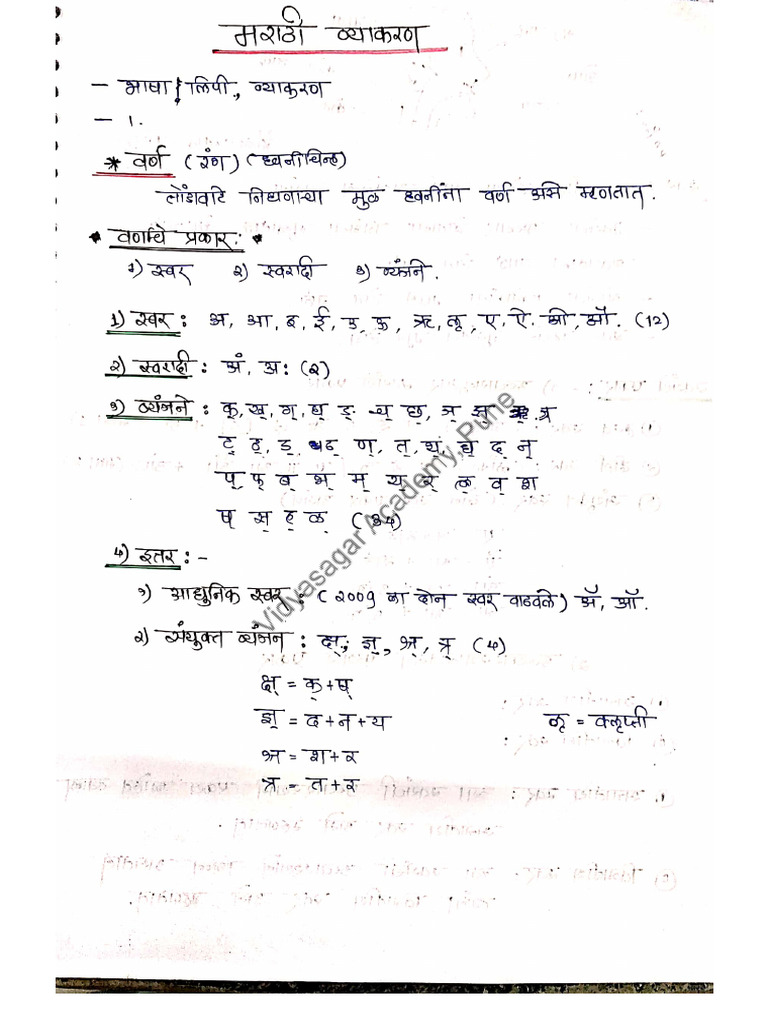 मराठी व्याकरण
- भाषा, लिपी, व्याकरण
- 1.
* वर्ण (रंग) (ध्वनीचिन्ह)
तोंडावाटे निघणाऱ्या मुळ ध्वनींना वर्ण असे म्हणतात.
* वर्णाचे प्रकार: *
१) स्वर २) स्वरादी ३) व्यंजने.
1) स्वर : अ, आ, इ, ई, उ, ऊ, ऋ, लृ, ए, ऐ, ओ, औ. (12)
२) स्वरादी : अं, अः (२)
३) व्यंजने : क्, ख्, ग्, घ्, ङ् च् छ्, ज् झ् ञ
ट् ठ्, ड् ढ ण्, त्, थ्, ध् द् न्
प्, फ् ब् भ् म् य र् ल् व् श
ष् स् ह् ळ् (३४)
४) इतर : -
१) आधुनिक स्वर : (2009 ला दोन स्वर वाढवले) ॲ, ऑ.
२) संयुक्त व्यंजन : क्ष्, ज्ञ्, श्र्, त्र् (४)
क्ष् = क् + ष्
ज्ञ् = द + न + य लृ = क्लृप्ती
श्र = श + र
त्र = त + र
Vidyasagar Academy, Pune